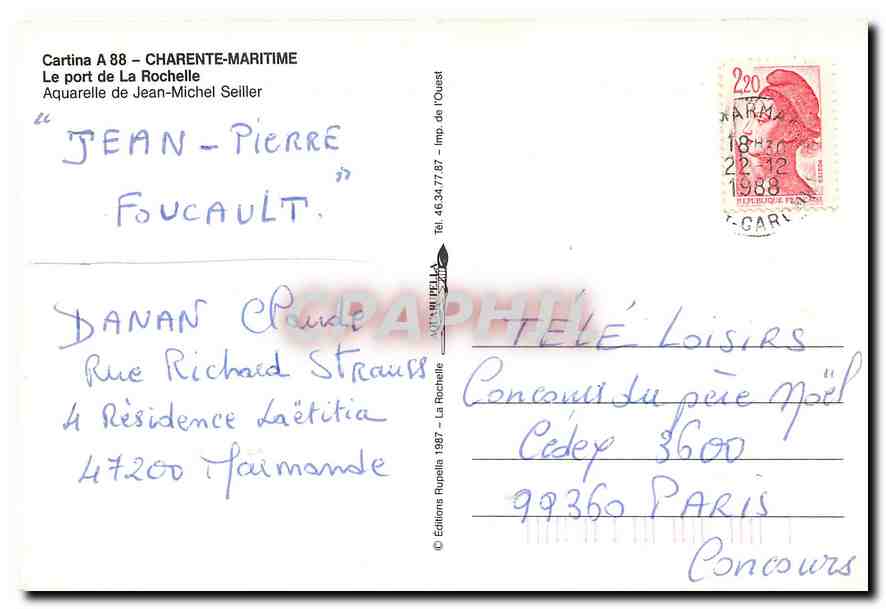 Cartina A 88 – CHARENTE-MARITIME
Le port de La Rochelle
Aquarelle de Jean-Michel Seiller
" JEAN - PIERRE
FOUCAULT. "
DANAN Claude
Rue Richard Strauss
4 Résidence Laëtitia
47200 Marmande
© Éditions Rupella 1987 – La Rochelle
AQUARUPELLA
Tél. 46.34.77.87 – Imp. de l'Ouest
CPAPHIL
2,20
18H30
22-12
1988
REPUBLIQUE
TÉLÉ LOISIRS
Concours du père Noël
Cédex 3600
99360 PARIS
Concours